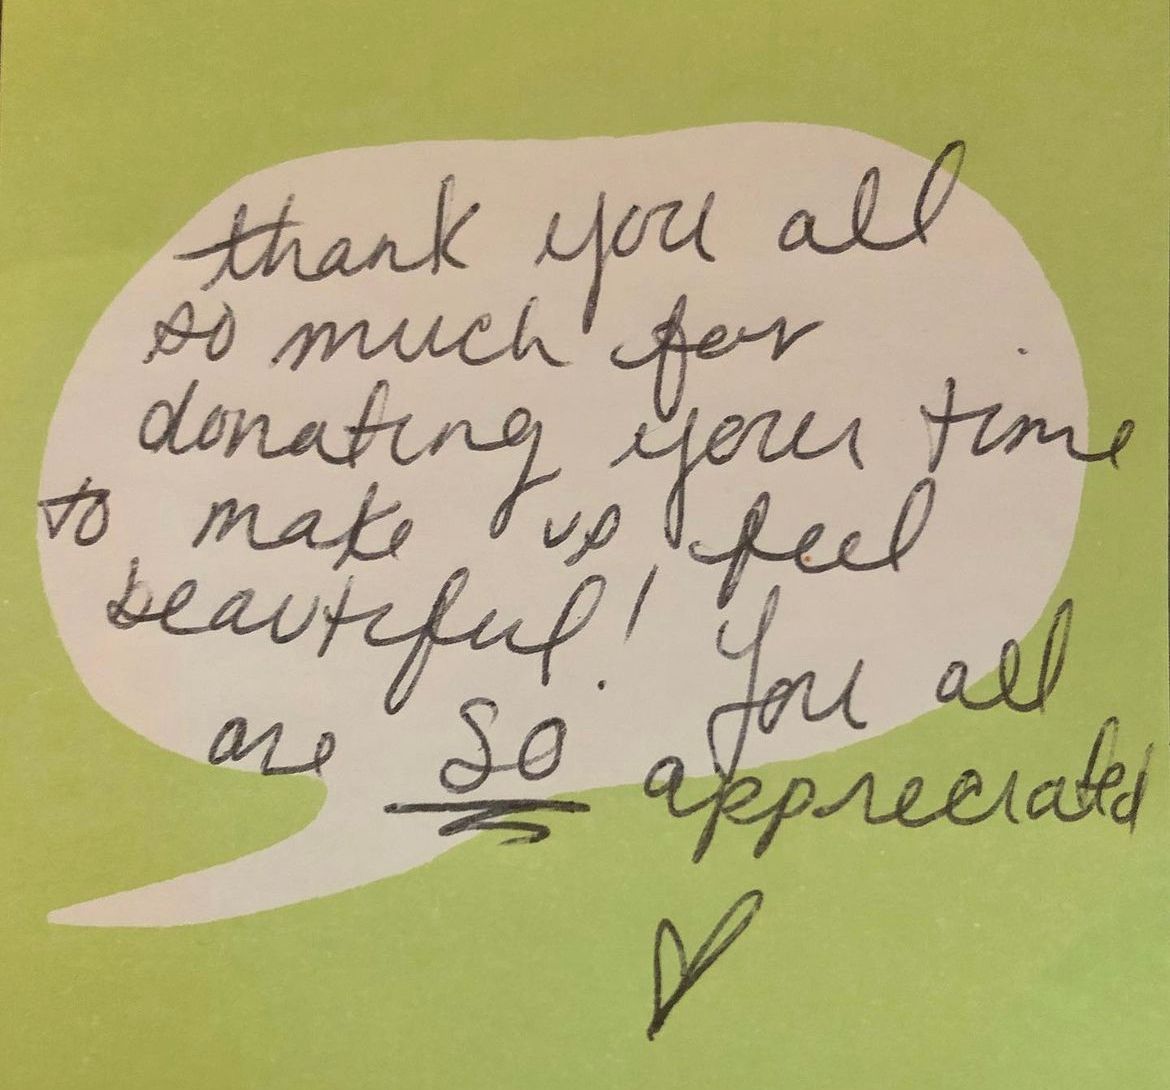 thank you all
so much for
donating your time
to make us feel
beautiful! You all
are SO appreciated